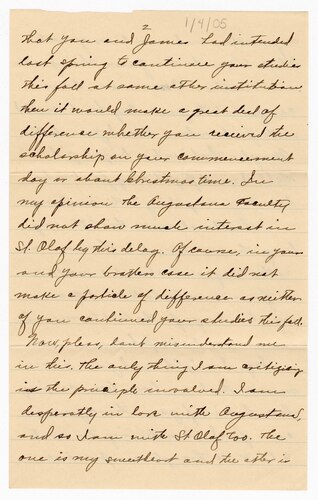 2
1/4/05
that you and James had intended
last spring to continue your studies
this fall at some other institution
then it would make a great deal of
difference whether you received the
scholarship on your commencement
day or about Christmas time. In
my opinion the Augustana Faculty
did not show much interest in
St. Olaf by this delay. Of course, in yours
and your brothers case it did not
make a particle of difference as neither
of you continued your studies this fall.
Now, pleas, dont misunderstand me
in this. The only thing I am critizising
is the principle involved. I am
desperatly in love with Augustana,
and so I am with St Olaf too. The
one is my sweetheart and the other is